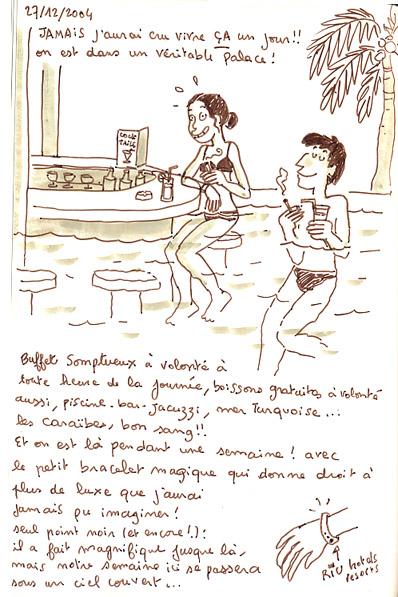 27/12/2004
JAMAIS j'aurai cru vivre ÇA un jour!!
on est dans un véritable palace!
COCK
TAILS
Buffet Somptueux à volonté à
toute heure de la journée, boissons gratuites à volonté
aussi, piscine-bar-jacuzzi, mer Turquoise...
les Caraïbes, bon sang!!
Et on est là pendant une semaine! avec
le petit bracelet magique qui donne droit à
plus de luxe que j'aurai
jamais pu imaginer!
seul point noir (et encore!):
il a fait magnifique jusque là,
mais notre semaine ici se passera
sous un ciel couvert...
RIU hotels
resorts